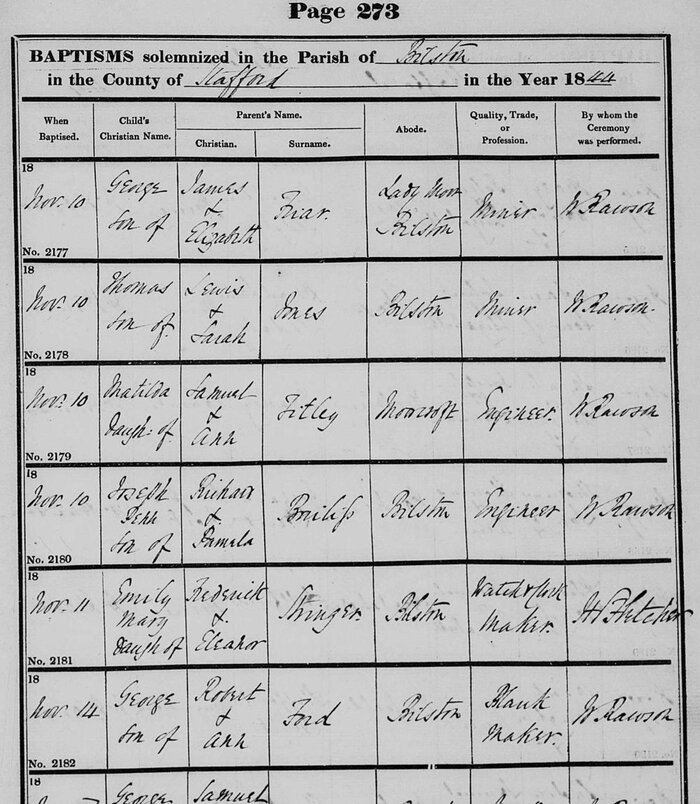 Page 273
BAPTISMS solemnized in the Parish of Bilston
in the County of Stafford in the Year 1844
When Baptised. Child's Christian Name. Parent's Name. Christian. Surname. Abode. Quality, Trade, or Profession. By whom the Ceremony was performed.
18
Nov. 10 George son of James & Elizabeth Friar. Lady Moor Bilston Miner W Rawson
No. 2177
18
Nov. 10 Thomas Son of Lewis & Sarah Jones Bilston Miner W Rawson.
No. 2178
18
Nov. 10 Matilda Daugh: of Samuel & Ann Titley Moorcroft Engineer. W. Rawson
No. 2179
18
Nov. 10 Joseph Penn Son of Richard & Pamala Bilston Engineer W Rawson
No. 2180
18
Nov. 11 Emily Mary Daugh of Frederick & Eleanor Stringer. Bilston Watch & Clock Maker. H S Fletcher
No. 2181
18
Nov. 14 George Son of Robert & Ann Ford Bilston Maker. W Rawson
No. 2182
18
George Samuel